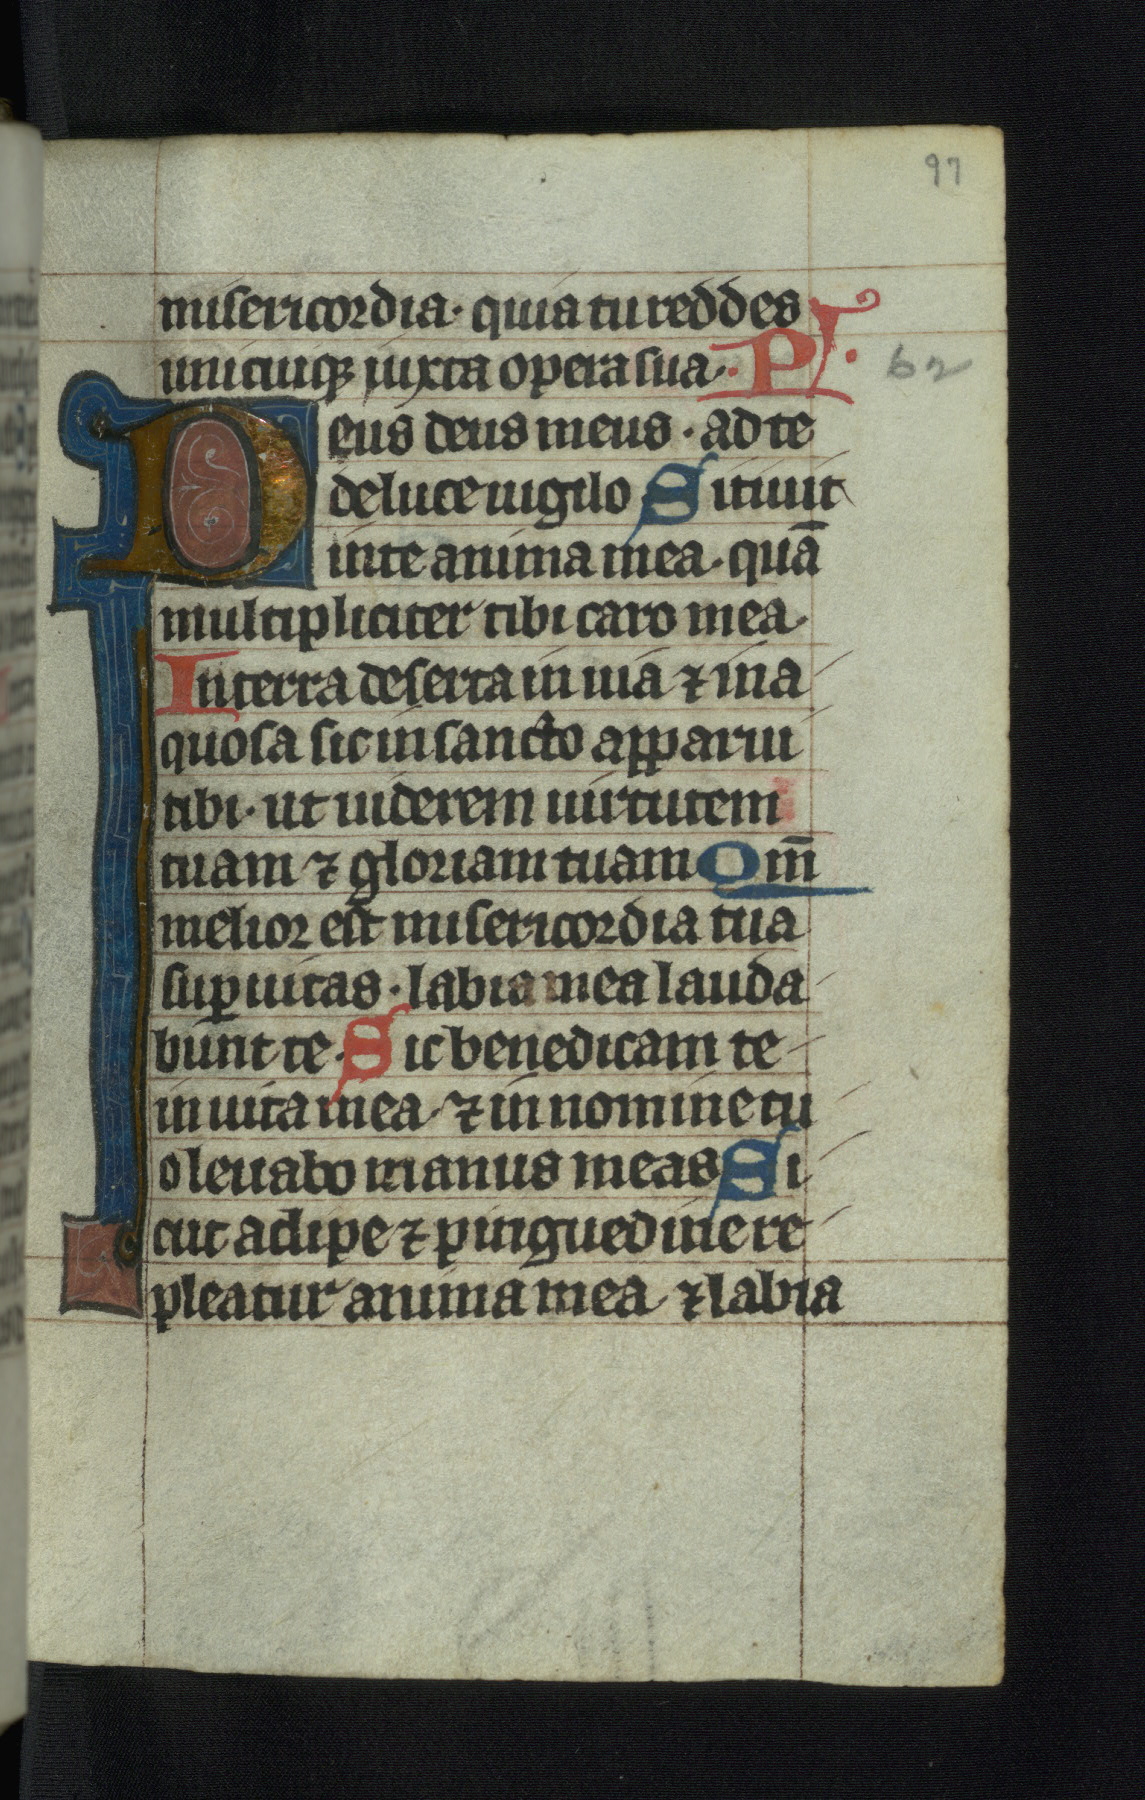 97
misericordia· quia tu reddes
unicuiqꝫ iuxta opera sua· Ps· 62
Deus deus meus · ad te
de luce uigilo Sitiuit
in te anima mea· quā
multipliciter tibi caro mea·
In terra deserta in uia ⁊ ina
quosa sic in sancto apparui
tibi· ut uiderem uirtutem
tuam ⁊ gloriam tuam Qm̄
melior est misericordia tua
suꝑ uitas · labia mea lauda
bunt te· Sic benedicam te
in uita mea· ⁊ in nomine tu
o leuabo manus meas Si
cut adipe ⁊ pinguedine re
pleatur anima mea· ⁊ labia